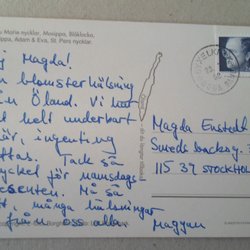 Maria nycklar. Mosippa, Blåklocka,
ppa, Adam & Eva, St. Pers nycklar.
j Magda!
n blomsterhälsning
ån Öland. Vi har
t helt underbart
är, ingenting
ftas. Tack så
ycket för namnsdags
esenten. Må så
tt, många hälsningar
från oss alla.
Magnus
Magda Enstedt
115 37 STOCKHOL
Borg